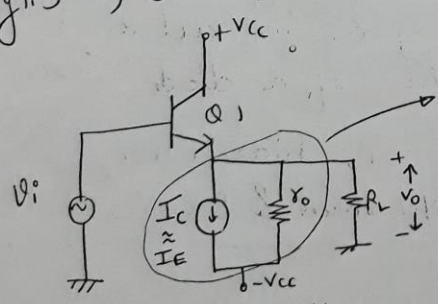 +Vcc
Q1
Vi
Ic
≈
IE
ro
RL
+
Vo
-
-Vcc